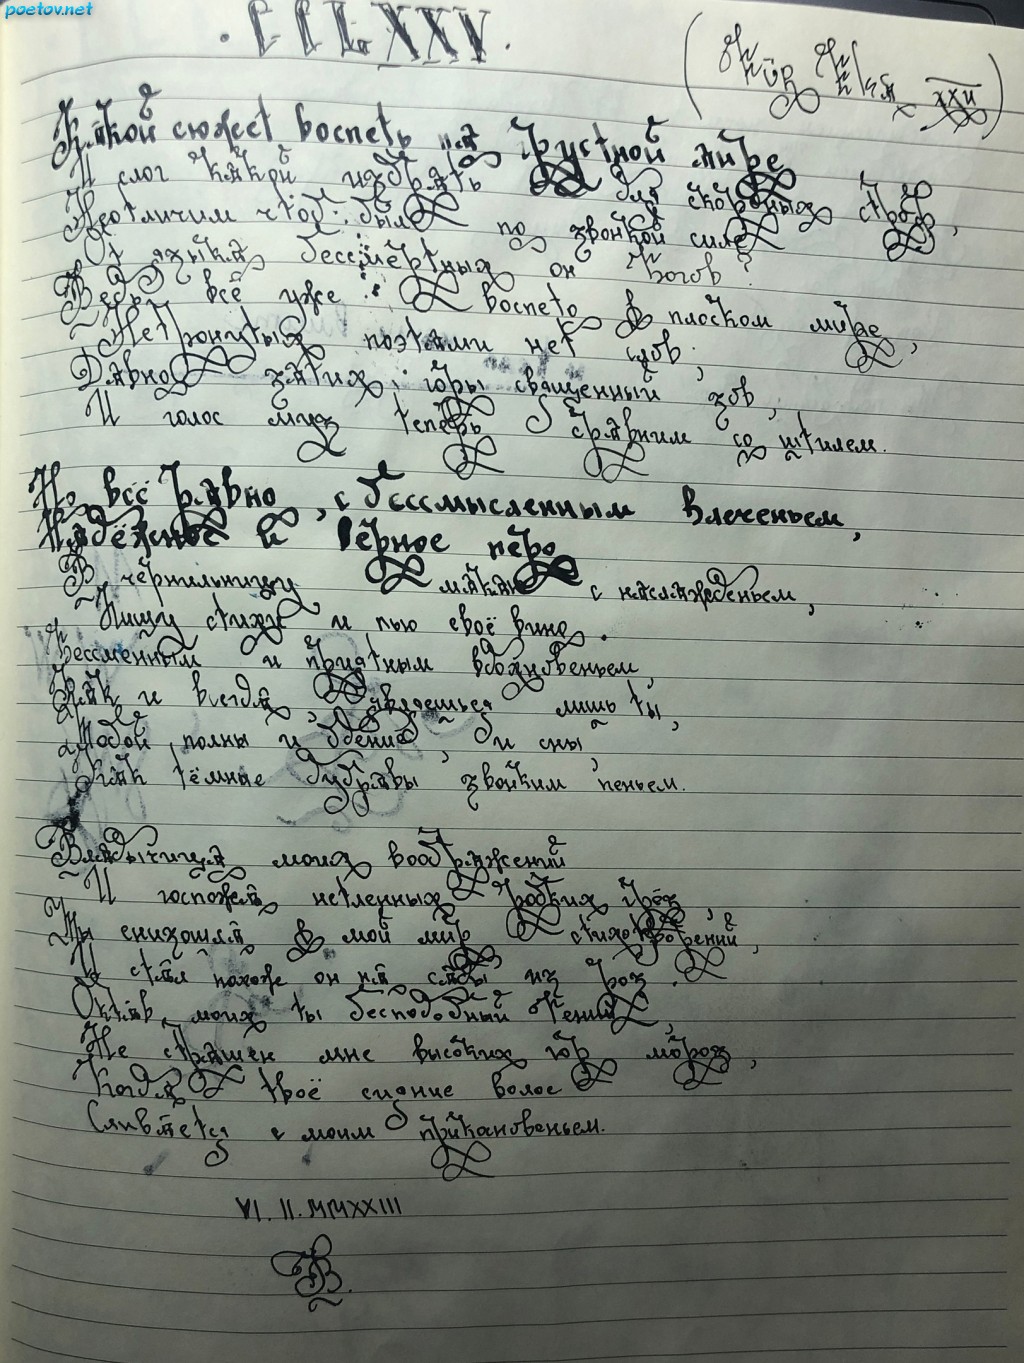 poetov.net
. CCLXXV.
(Für XXII)
Какой сюжет воспеть на грустной лире
И слог какой избрать для скорбных строф,
Неотличим чтоб был по звонкой силе
От языка бессмертных он богов?
Ведь всё уже воспето в плоском мире,
Нетронутых поэтами нет слов;
Давно затих горы священный зов,
И голос муз теперь сравним со штилем.
Но всё равно, с бессмысленным влеченьем,
Надёжное и чёрное перо
В чернильницу макаю с наслажденьем,
Пишу стихи и пью своё вино.
Бессменным и приятным вдохновеньем,
Как и всегда, являешься лишь ты,
Тобой полны и бдения, и сны,
Как тёмные дубравы звонким пеньем.
Владычица моих воображений
И госпожа нетленных робких грёз,
Ты снизошла в мой мир стихотворений,
И стал похож он на сады из роз.
Октав моих ты бесподобный гений,
Не страшен мне высоких гор мороз,
Когда твоё сияние волос
Сливается с моим прикановеньем.
VI. II. MMXXIII
В.